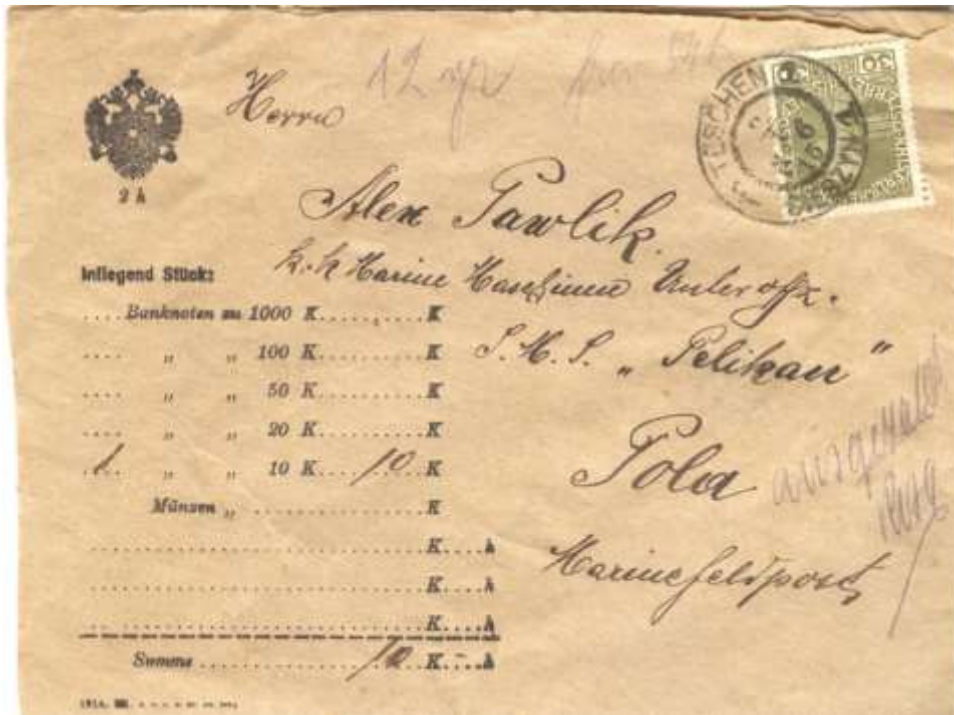 12
Herrn
TESCHEN
30
2 h
Alex Pawlik.
k.k Marine Maschinen Unteroffz.
S.M.S. „Pelikan“
Pola
Marinefeldpost
Inliegend Stück:
.... Banknoten zu 1000 K.........K
.... „ „ 100 K.........K
.... „ „ 50 K.........K
.... „ „ 20 K.........K
.1. „ „ 10 K....10.K
Münzen „ ..................K
..............................K....h
..............................K....h
..............................K....h
Summe ...............10.K....h
1914.